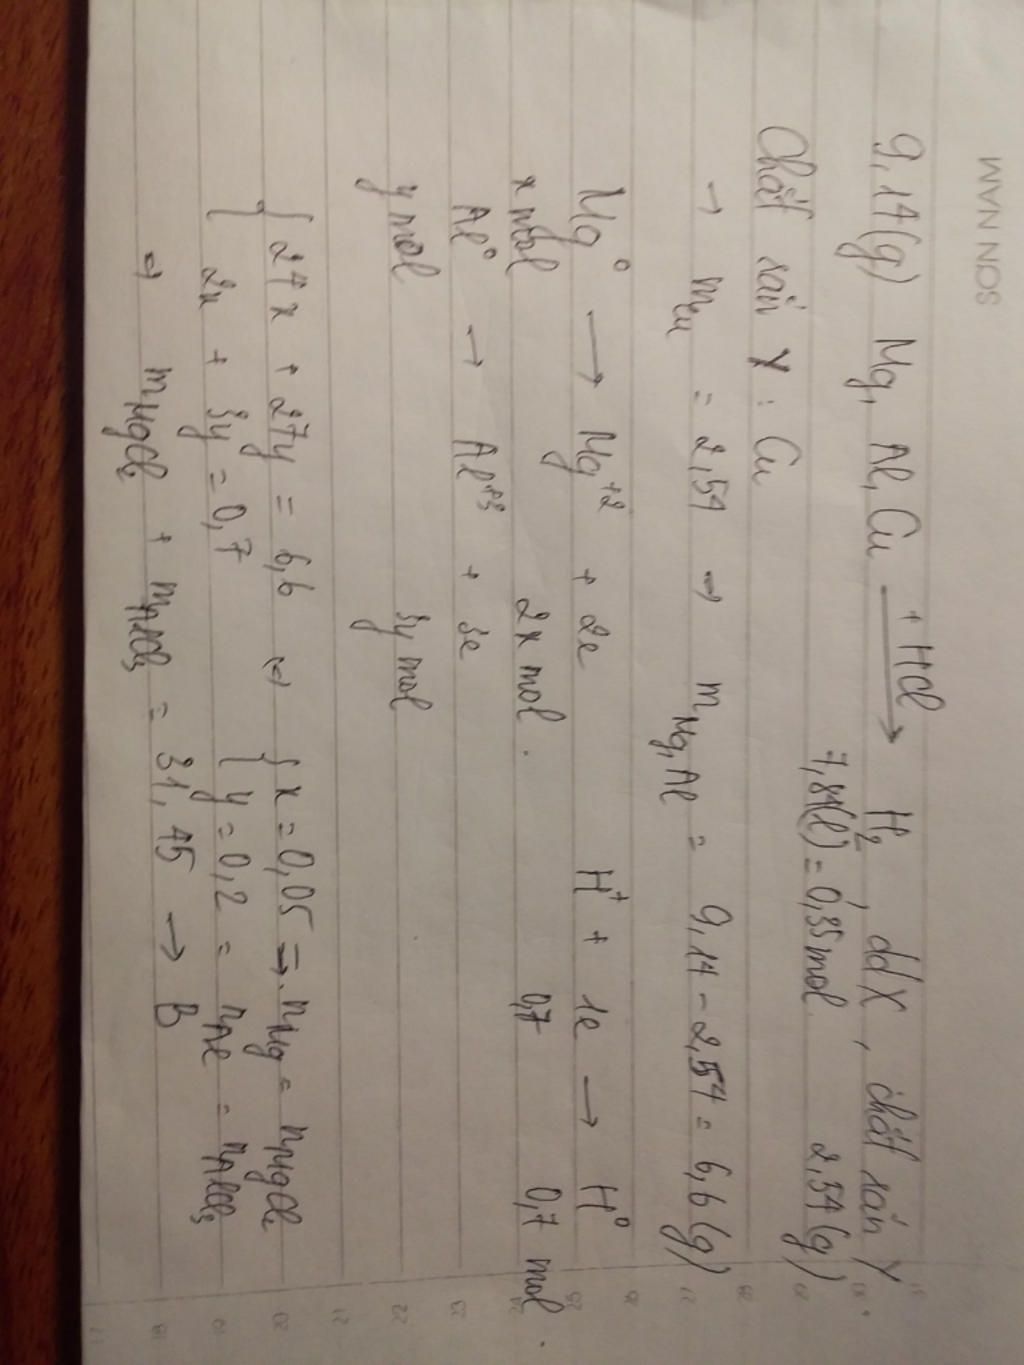 SON NAM
9,14(g) Mg, Al, Cu + HCl → H2, dd X, chất rắn Y
7,84(l) = 0,35 mol 2,54(g)
Chất rắn Y : Cu
→ mCu = 2,54 → mMg, Al = 9,14 - 2,54 = 6,6 (g)
Mg⁰ → Mg⁺² + 2e H⁺ + 1e → H⁰
x mol 2x mol. 0,7 0,7 mol.
Al⁰ → Al⁺³ + 3e
y mol 3y mol
{ 24x + 27y = 6,6 ⇒ { x = 0,05 → nMg = nMgCl2
{ 2x + 3y = 0,7 { y = 0,2 = nAl = nAlCl3
⇒ mMgCl2 + mAlCl3 = 31,45 → B